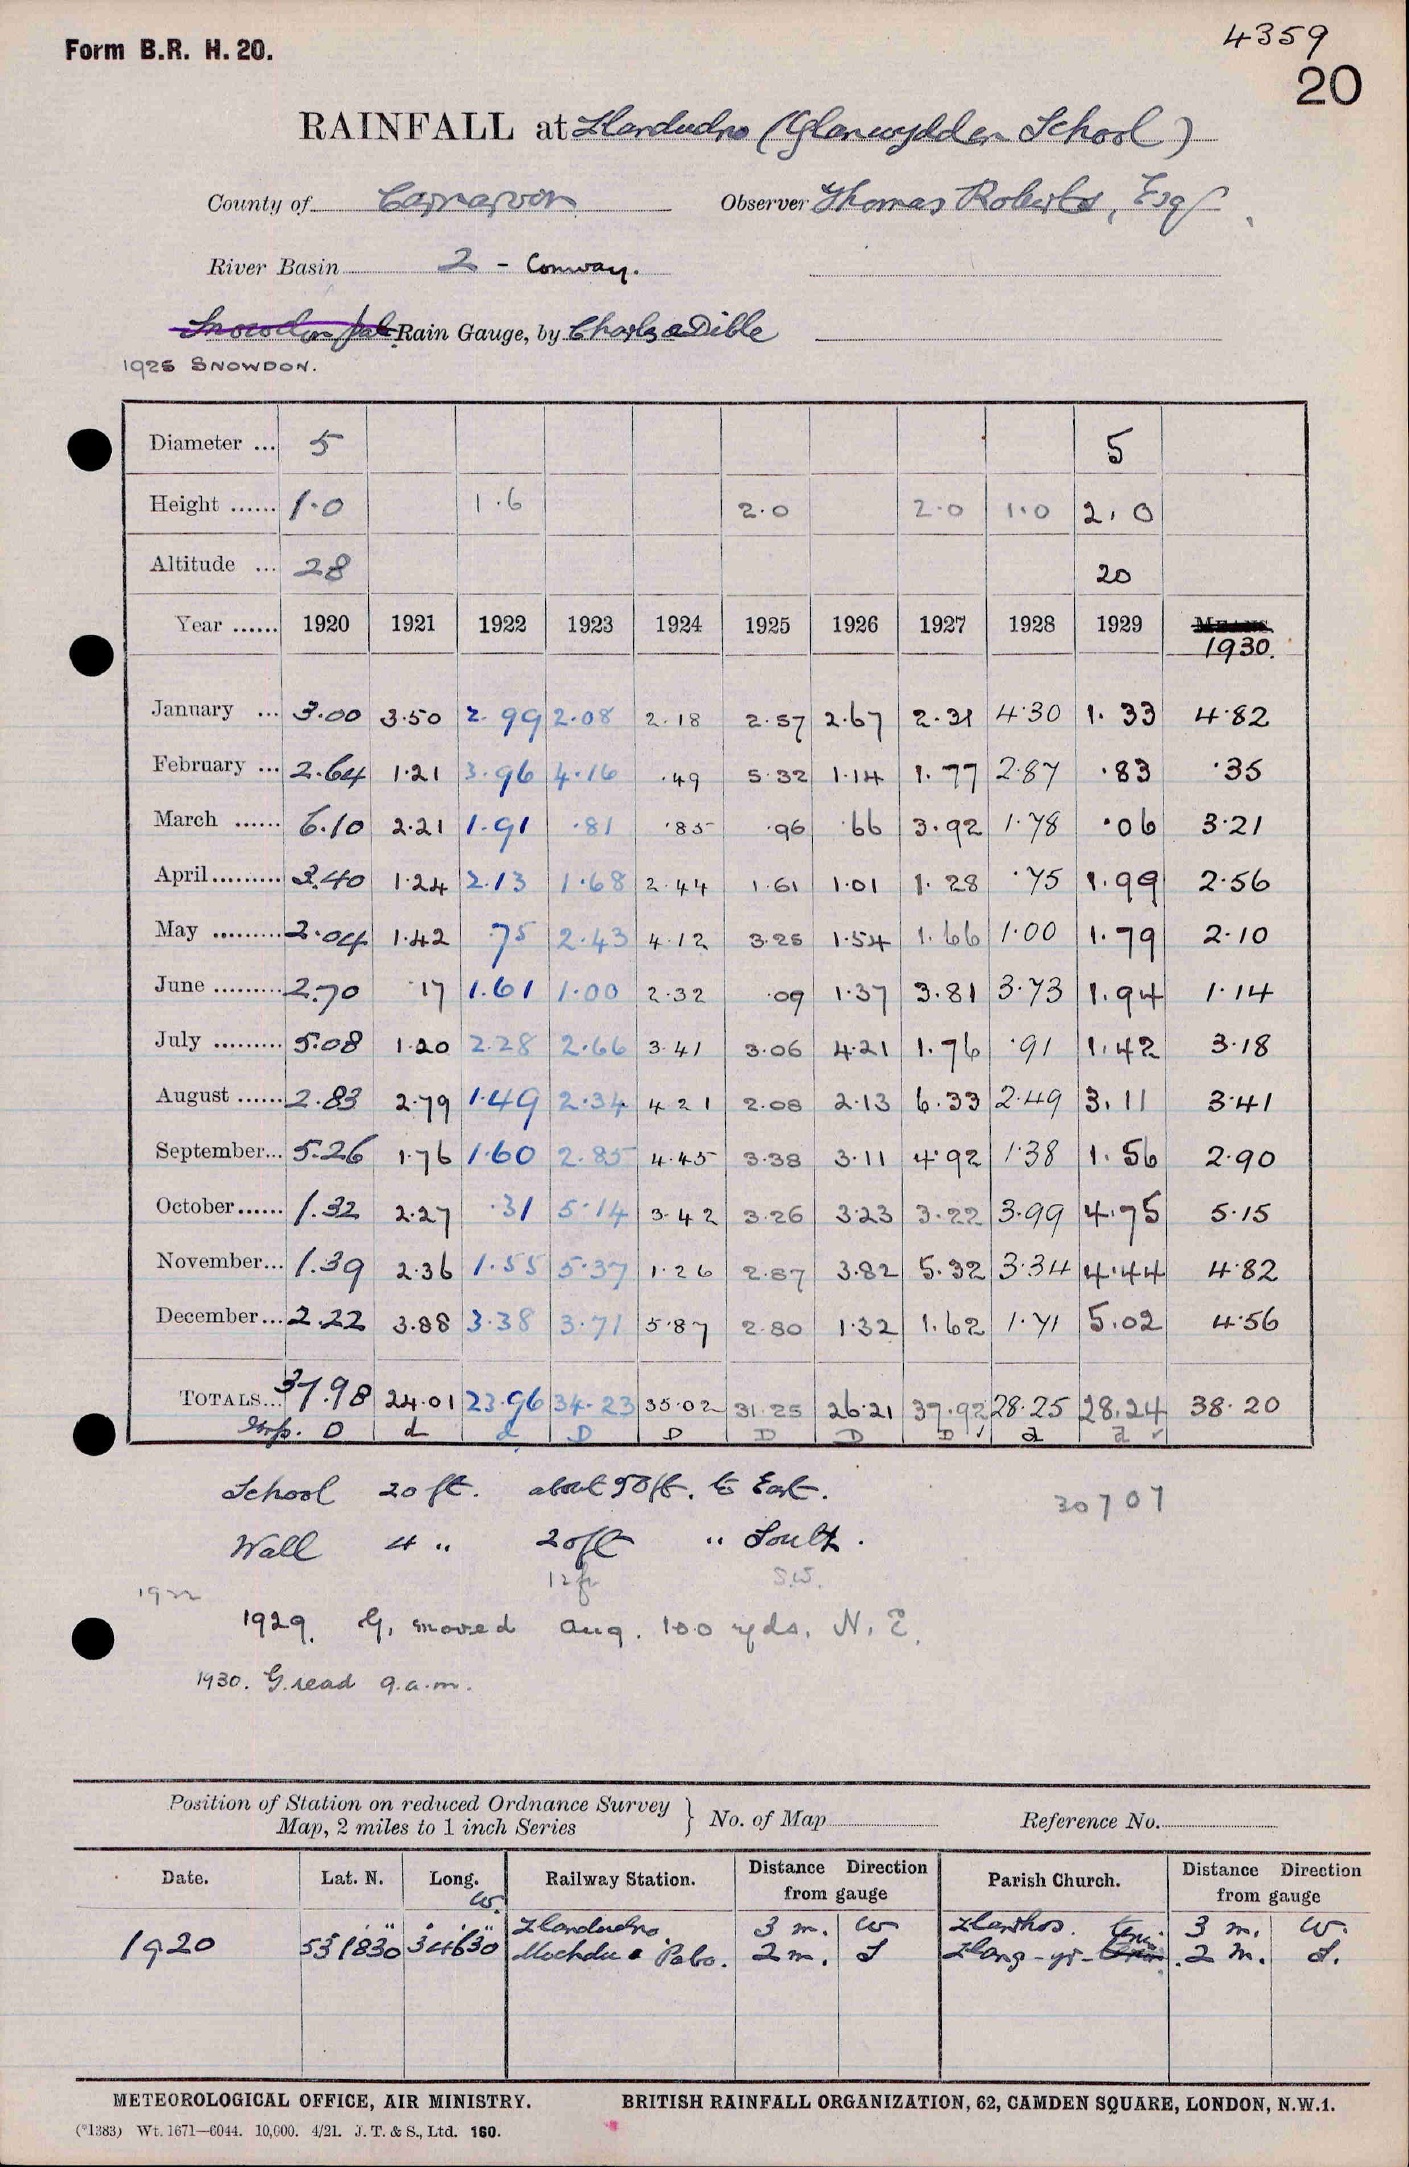 4359
Form B.R. H. 20.
20
RAINFALL at Llandudno (Glanwydden School)
County of Carnarvon Observer Thomas Roberts, Esq
River Basin 2 - Conway.
Snowdon pat Rain Gauge, by Charles a Dible
1925 SNOWDON.
Diameter ... 5 5
Height ...... 1.0 1.6 2.0 2.0 1.0 2.0
Altitude ... 28 20
Year ...... 1920 1921 1922 1923 1924 1925 1926 1927 1928 1929 MEANS
1930.
January ... 3.00 3.50 2.99 2.08 2.18 2.57 2.67 2.31 4.30 1.33 4.82
February ... 2.64 1.21 3.96 4.16 .49 5.32 1.14 1.77 2.87 .83 .35
March ...... 6.10 2.21 1.91 .81 .85 .96 .66 3.92 1.78 .06 3.21
April ......... 3.40 1.24 2.13 1.68 2.44 1.61 1.01 1.28 .75 1.99 2.56
May ......... 2.04 1.42 .75 2.43 4.12 3.25 1.54 1.66 1.00 1.79 2.10
June ......... 2.70 .17 1.61 1.00 2.32 .09 1.37 3.81 3.73 1.94 1.14
July ......... 5.08 1.20 2.28 2.66 3.41 3.06 4.21 1.76 .91 1.42 3.18
August ...... 2.83 2.79 1.49 2.34 4.21 2.08 2.13 6.33 2.49 3.11 3.41
September... 5.26 1.76 1.60 2.85 4.45 3.38 3.11 4.92 1.38 1.56 2.90
October...... 1.32 2.27 .31 5.14 3.42 3.26 3.23 3.22 3.99 4.75 5.15
November... 1.39 2.36 1.55 5.37 1.26 2.87 3.82 5.32 3.34 4.44 4.82
December... 2.22 3.88 3.38 3.71 5.87 2.80 1.32 1.62 1.71 5.02 4.56
TOTALS... 37.98 24.01 23.96 34.23 35.02 31.25 26.21 37.92 28.25 28.24 38.20
D d d D D D D D ✓ d d ✓
School 20 ft. about 50 ft. to East.
30707
Wall 4 " 20 ft " South.
1922 12 ft S.W.
1929. G. moved Aug. 100 yds. N.E.
1930. G. read 9.a.m.
Position of Station on reduced Ordnance Survey Map, 2 miles to 1 inch Series } No. of Map Reference No.
Date. Lat. N. Long. W. Railway Station. Distance Direction from gauge Parish Church. Distance Direction from gauge
Llandudno. 3 m. W Llanrhos. 3 m. W.
1920 53° 18' 30" 3° 46' 30" Mochdre & Pabo. 2 m. S Llang-yr- 2 m. S.
METEOROLOGICAL OFFICE, AIR MINISTRY. BRITISH RAINFALL ORGANIZATION, 62, CAMDEN SQUARE, LONDON, N.W.1.
(*1383) Wt. 1671—6044. 10,000. 4/21. J. T. & S., Ltd. 160.